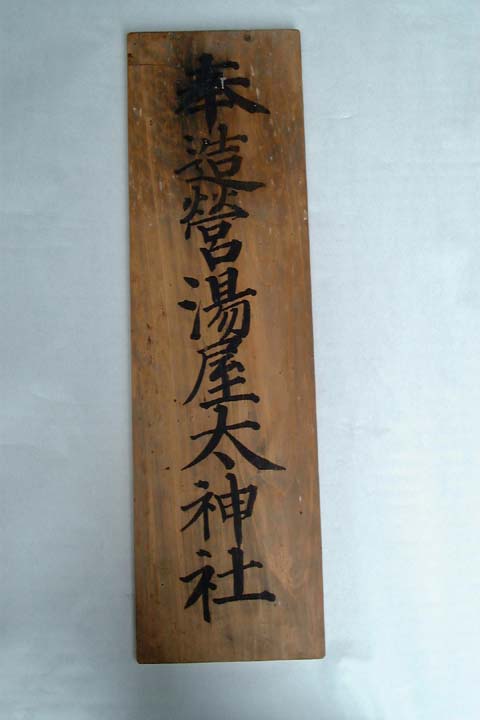 奉造營湯屋太神社